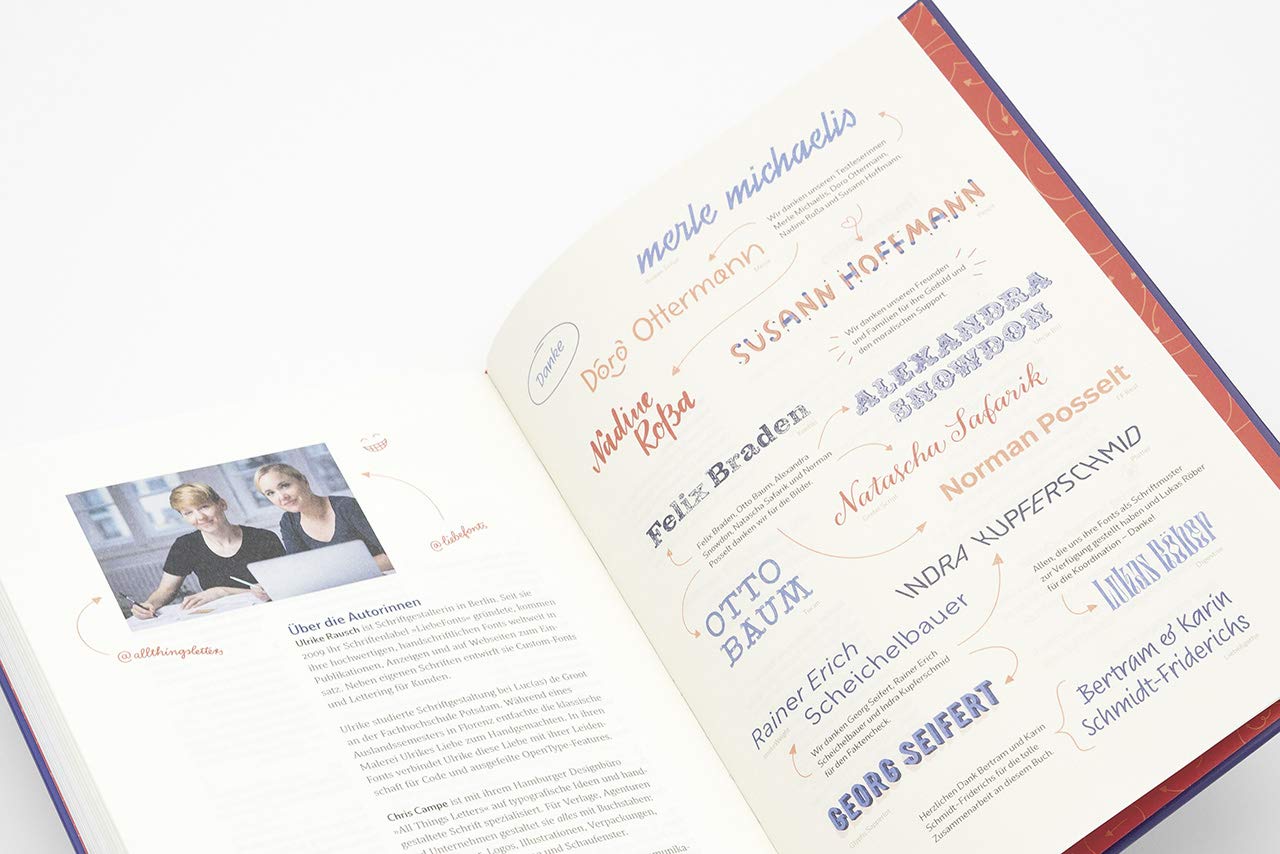 @liebefonts
@allthingsletters
Über die Autorinnen
Ulrike Rausch ist Schriftgestalterin in Berlin. Seit sie
2009 ihr Schriftenlabel »LiebeFonts« gründete, kommen
ihre hochwertigen, handschriftlichen Fonts weltweit in
Publikationen, Anzeigen und auf Webseiten zum Ein-
satz. Neben eigenen Schriften entwirft sie Custom-Fonts
und Lettering für Kunden.
Ulrike studierte Schriftgestaltung bei Luc(as) de Groot
an der Fachhochschule Potsdam. Während eines
Auslandssemesters in Florenz entfachte die klassische
Malerei Ulrikes Liebe zum Handgemachten. In ihren
Fonts verbindet Ulrike diese Liebe mit ihrer Leiden-
schaft für Code und ausgefeilte OpenType-Features.
Chris Campe ist mit ihrem Hamburger Designbüro
»All Things Letters« auf typografische Ideen und hand-
gestaltete Schrift spezialisiert. Für Verlage, Agenturen
und Unternehmen gestaltet sie alles mit Buchstaben:
Logos, Illustrationen, Verpackungen,
und Schaufenster.
Danke
merle michaelis
Wir danken unseren Testleserinnen
Merle Michaelis, Doro Ottermann,
Nadine Roßa und Susann Hoffmann.
Doro Ottermann
SUSANN HOFFMANN
Nadine
Roßa
Wir danken unseren Freunden
und Familien für ihre Geduld und
den moralischen Support.
ALEXANDRA
SNOWDON
Felix Braden
Felix Braden, Otto Baum, Alexandra
Snowdon, Natascha Safarik und Norman
Posselt danken wir für die Bilder.
Natascha Safarik
Norman Posselt
FF Real
OTTO
BAUM
INDRA KUPFERSCHMID
Allen, die uns ihre Fonts als Schriftmuster
zur Verfügung gestellt haben und Lukas Röber
für die Koordination – Danke!
Lukas Röber
Digestive
Rainer Erich
Scheichelbauer
Wir danken Georg Seifert, Rainer Erich
Scheichelbauer und Indra Kupferschmid
für den Faktencheck.
GEORG SEIFERT
Bertram & Karin
Schmidt-Friderichs
Herzlichen Dank Bertram und Karin
Schmidt-Friderichs für die tolle
Zusammenarbeit an diesem Buch.